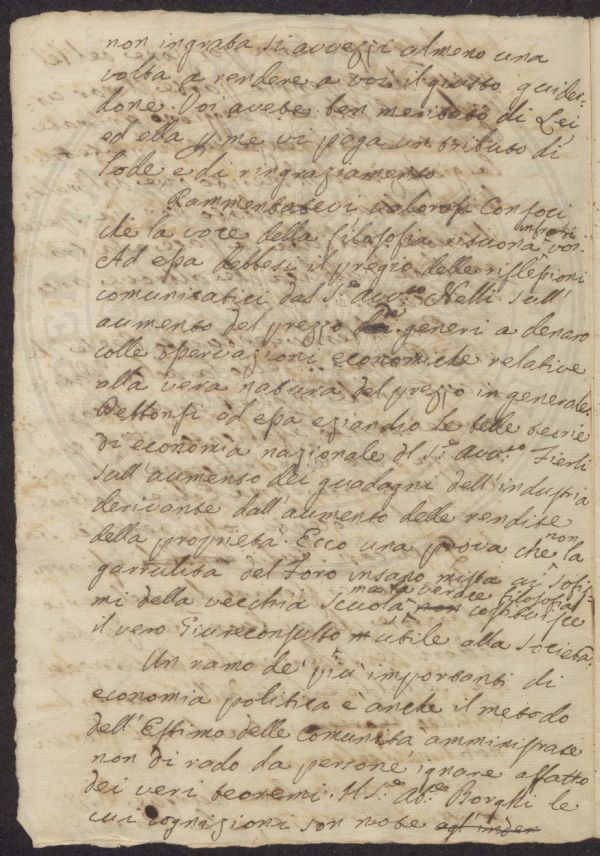 non ingrata si avvezzi almeno una
volta a rendere a voi il giusto guider-
done. Voi avete ben meritato di Lei,
ed ella p me vi paga un tributo di
lode e di ringraziamento.
Rammentatevi valorosi Consoci
che la voce della filosofia risuona infra di voi.
Ad essa debbesi il pregio delle riflessioni
comunicatici dal S.e Avv.to Nelli sull'
aumento del prezzo de generi a denaro
colle osservazioni economiche relative
alla vera natura del prezzo in generale.
Dettonsi ad essa eziandio le belle teorie
di economia nazionale del S.e Avv.to Fierli
sull'aumento dei guadagni dell'industria
derivante dall'aumento delle rendite
della proprietà. Ecco una prova che non la
garrulità del Foro insano mista ai sofis-
mi della vecchia scuola ma la verace filosofia non costituisce
il vero Giureconsulto utile alla società.
Un ramo de' più importanti di
economia politica è anche il metodo
dell'Estimo delle Comunità amministrate
non di rado da persone ignare affatto
dei veri teoremi. Il S.e Ab.e Borghi le
cui cognizioni son note agl'inten